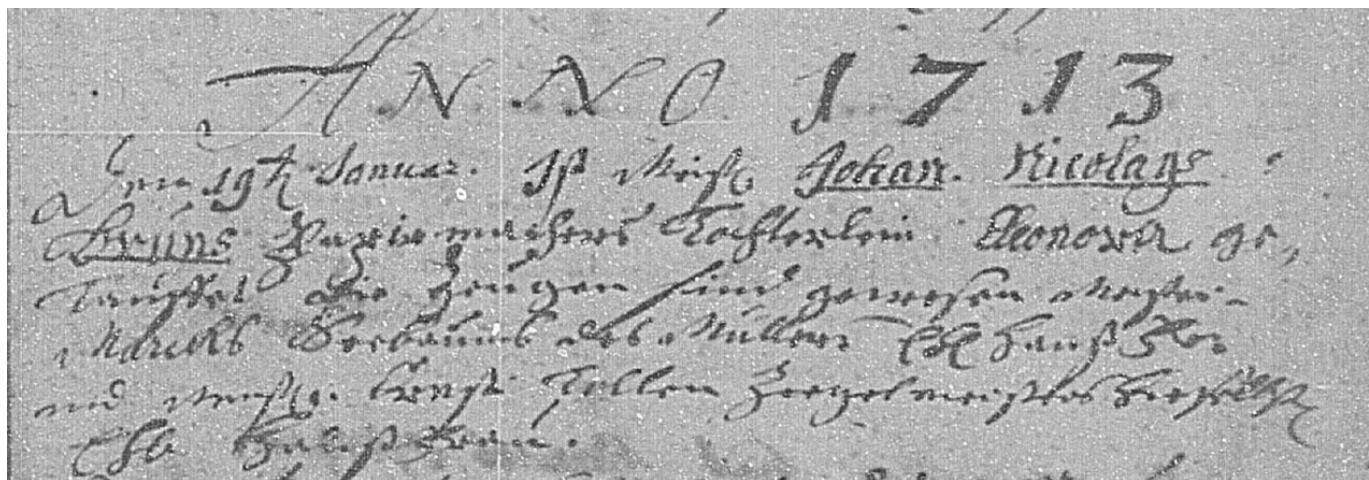 ANNO 1713
Den 19t Januar. Ist Meist. Johan. Nicolaus
Bruns Papiermachers Tochterlein Eleonora ge,
tauffet die Zeugen sind gewesen Meister
Marcks des Müllers Ehl Hauß
und Meist. Ernst Tollen Ziegelmeisters
Ehl Hauß Frau.